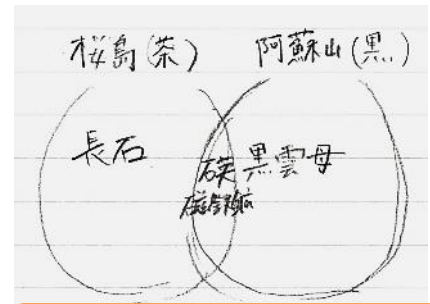 桜島(茶) 阿蘇山(黒)
長石 石英 黒雲母
磁鉄鉱